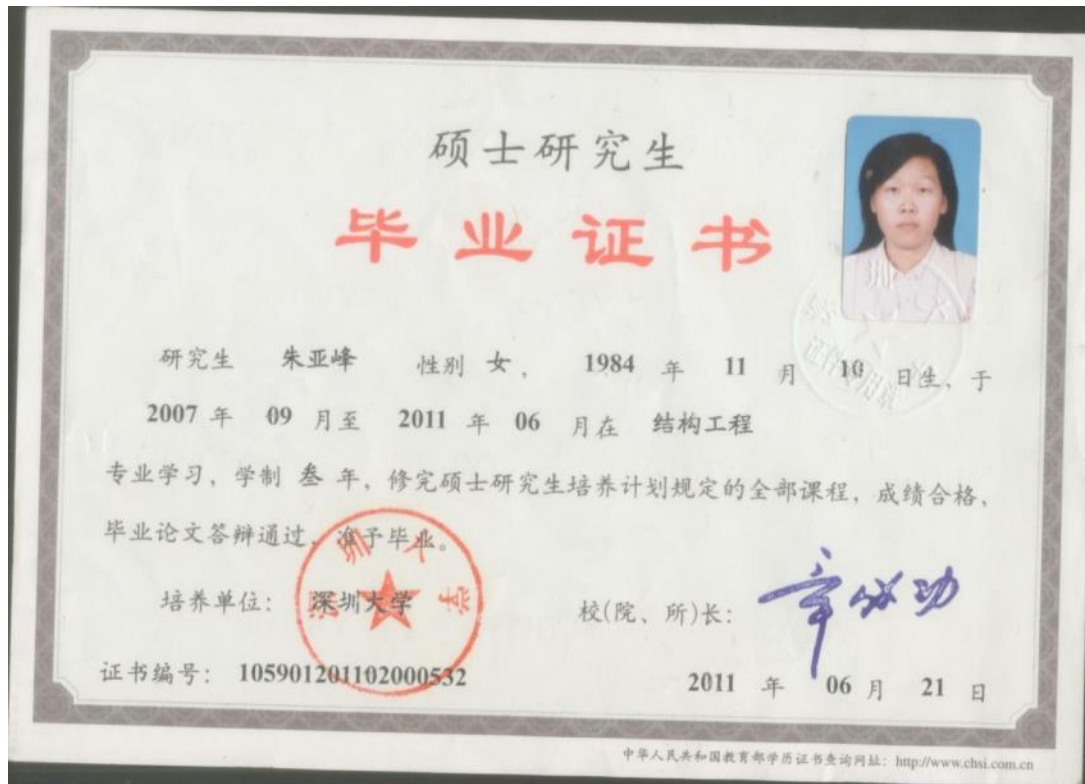 硕士研究生
毕业证书
研究生 朱亚峰 性别 女, 1984 年 11 月 10 日生、于
2007 年 09 月至 2011 年 06 月在 结构工程
专业学习, 学制 叁 年, 修完硕士研究生培养计划规定的全部课程, 成绩合格,
毕业论文答辩通过, 准予毕业。
培养单位: 深圳大学 校(院、所)长: 章必功
深圳大学
证书编号: 105901201102000532 2011 年 06 月 21 日
中华人民共和国教育部学历证书查询网址: http://www.chsi.com.cn